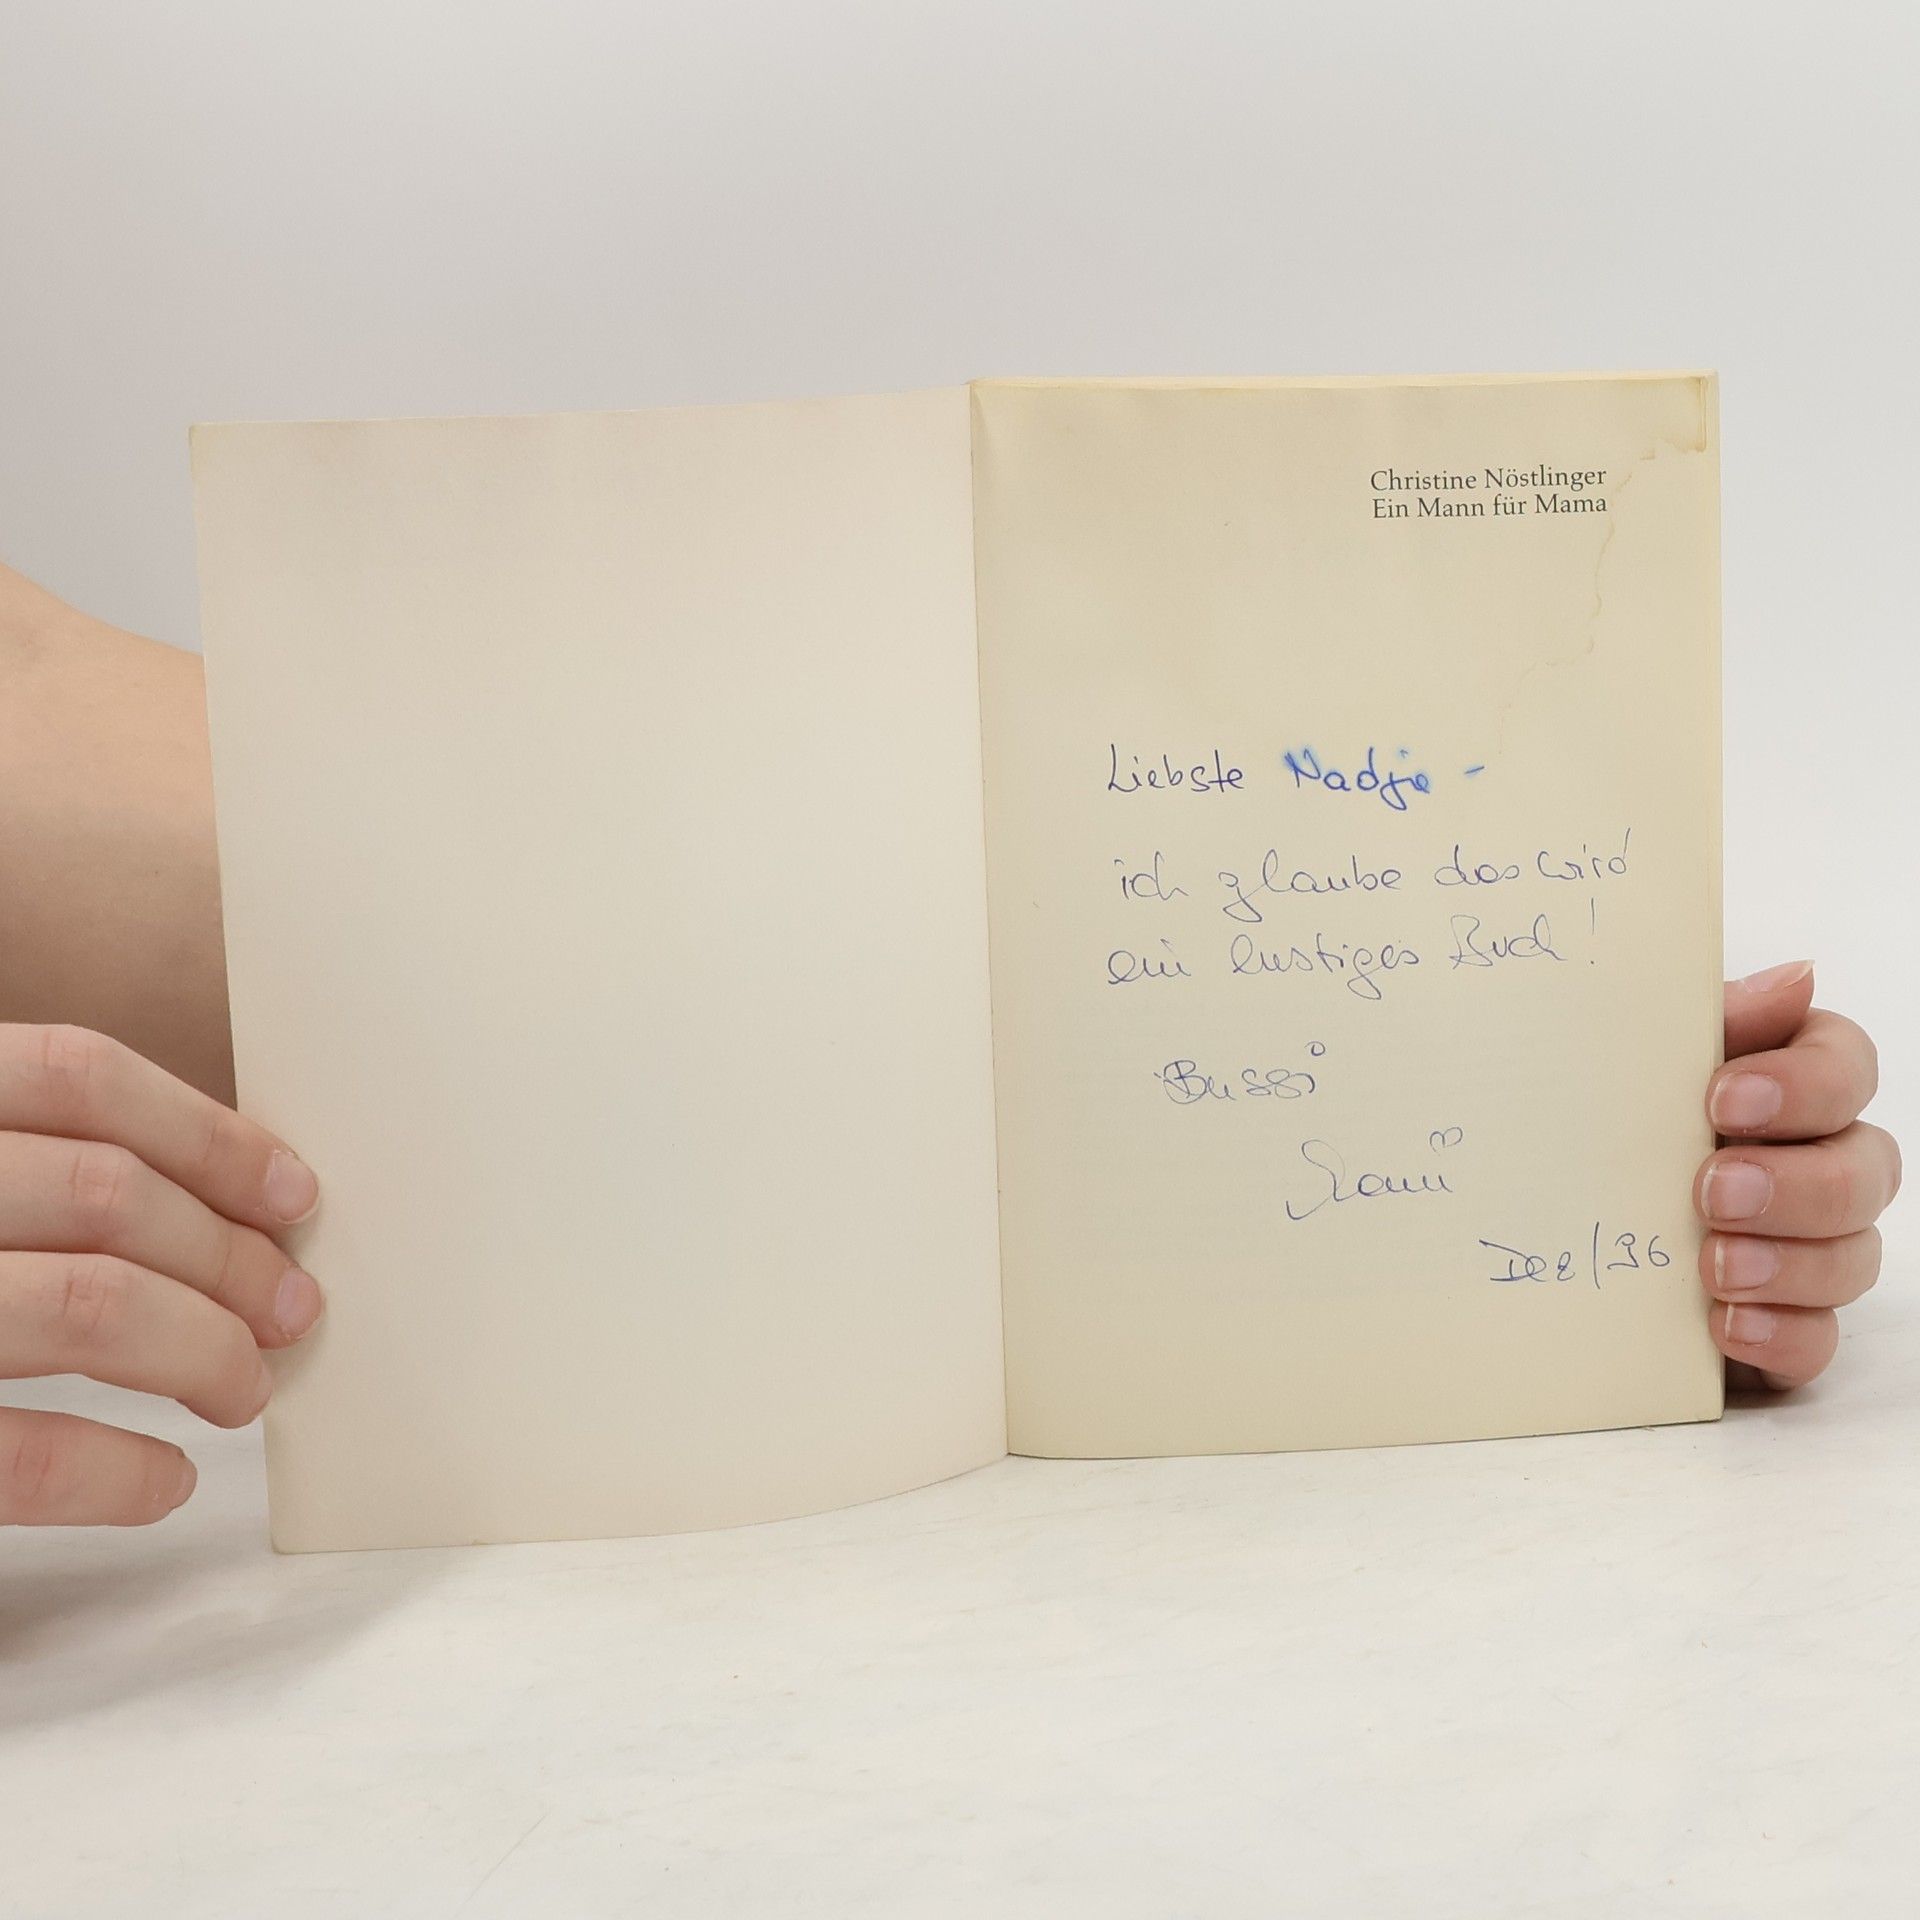 Christine Nöstlinger
Ein Mann für Mama
Liebste Nadja -
ich glaube das wird
ein lustiges Buch!
Bussi
Dez/96